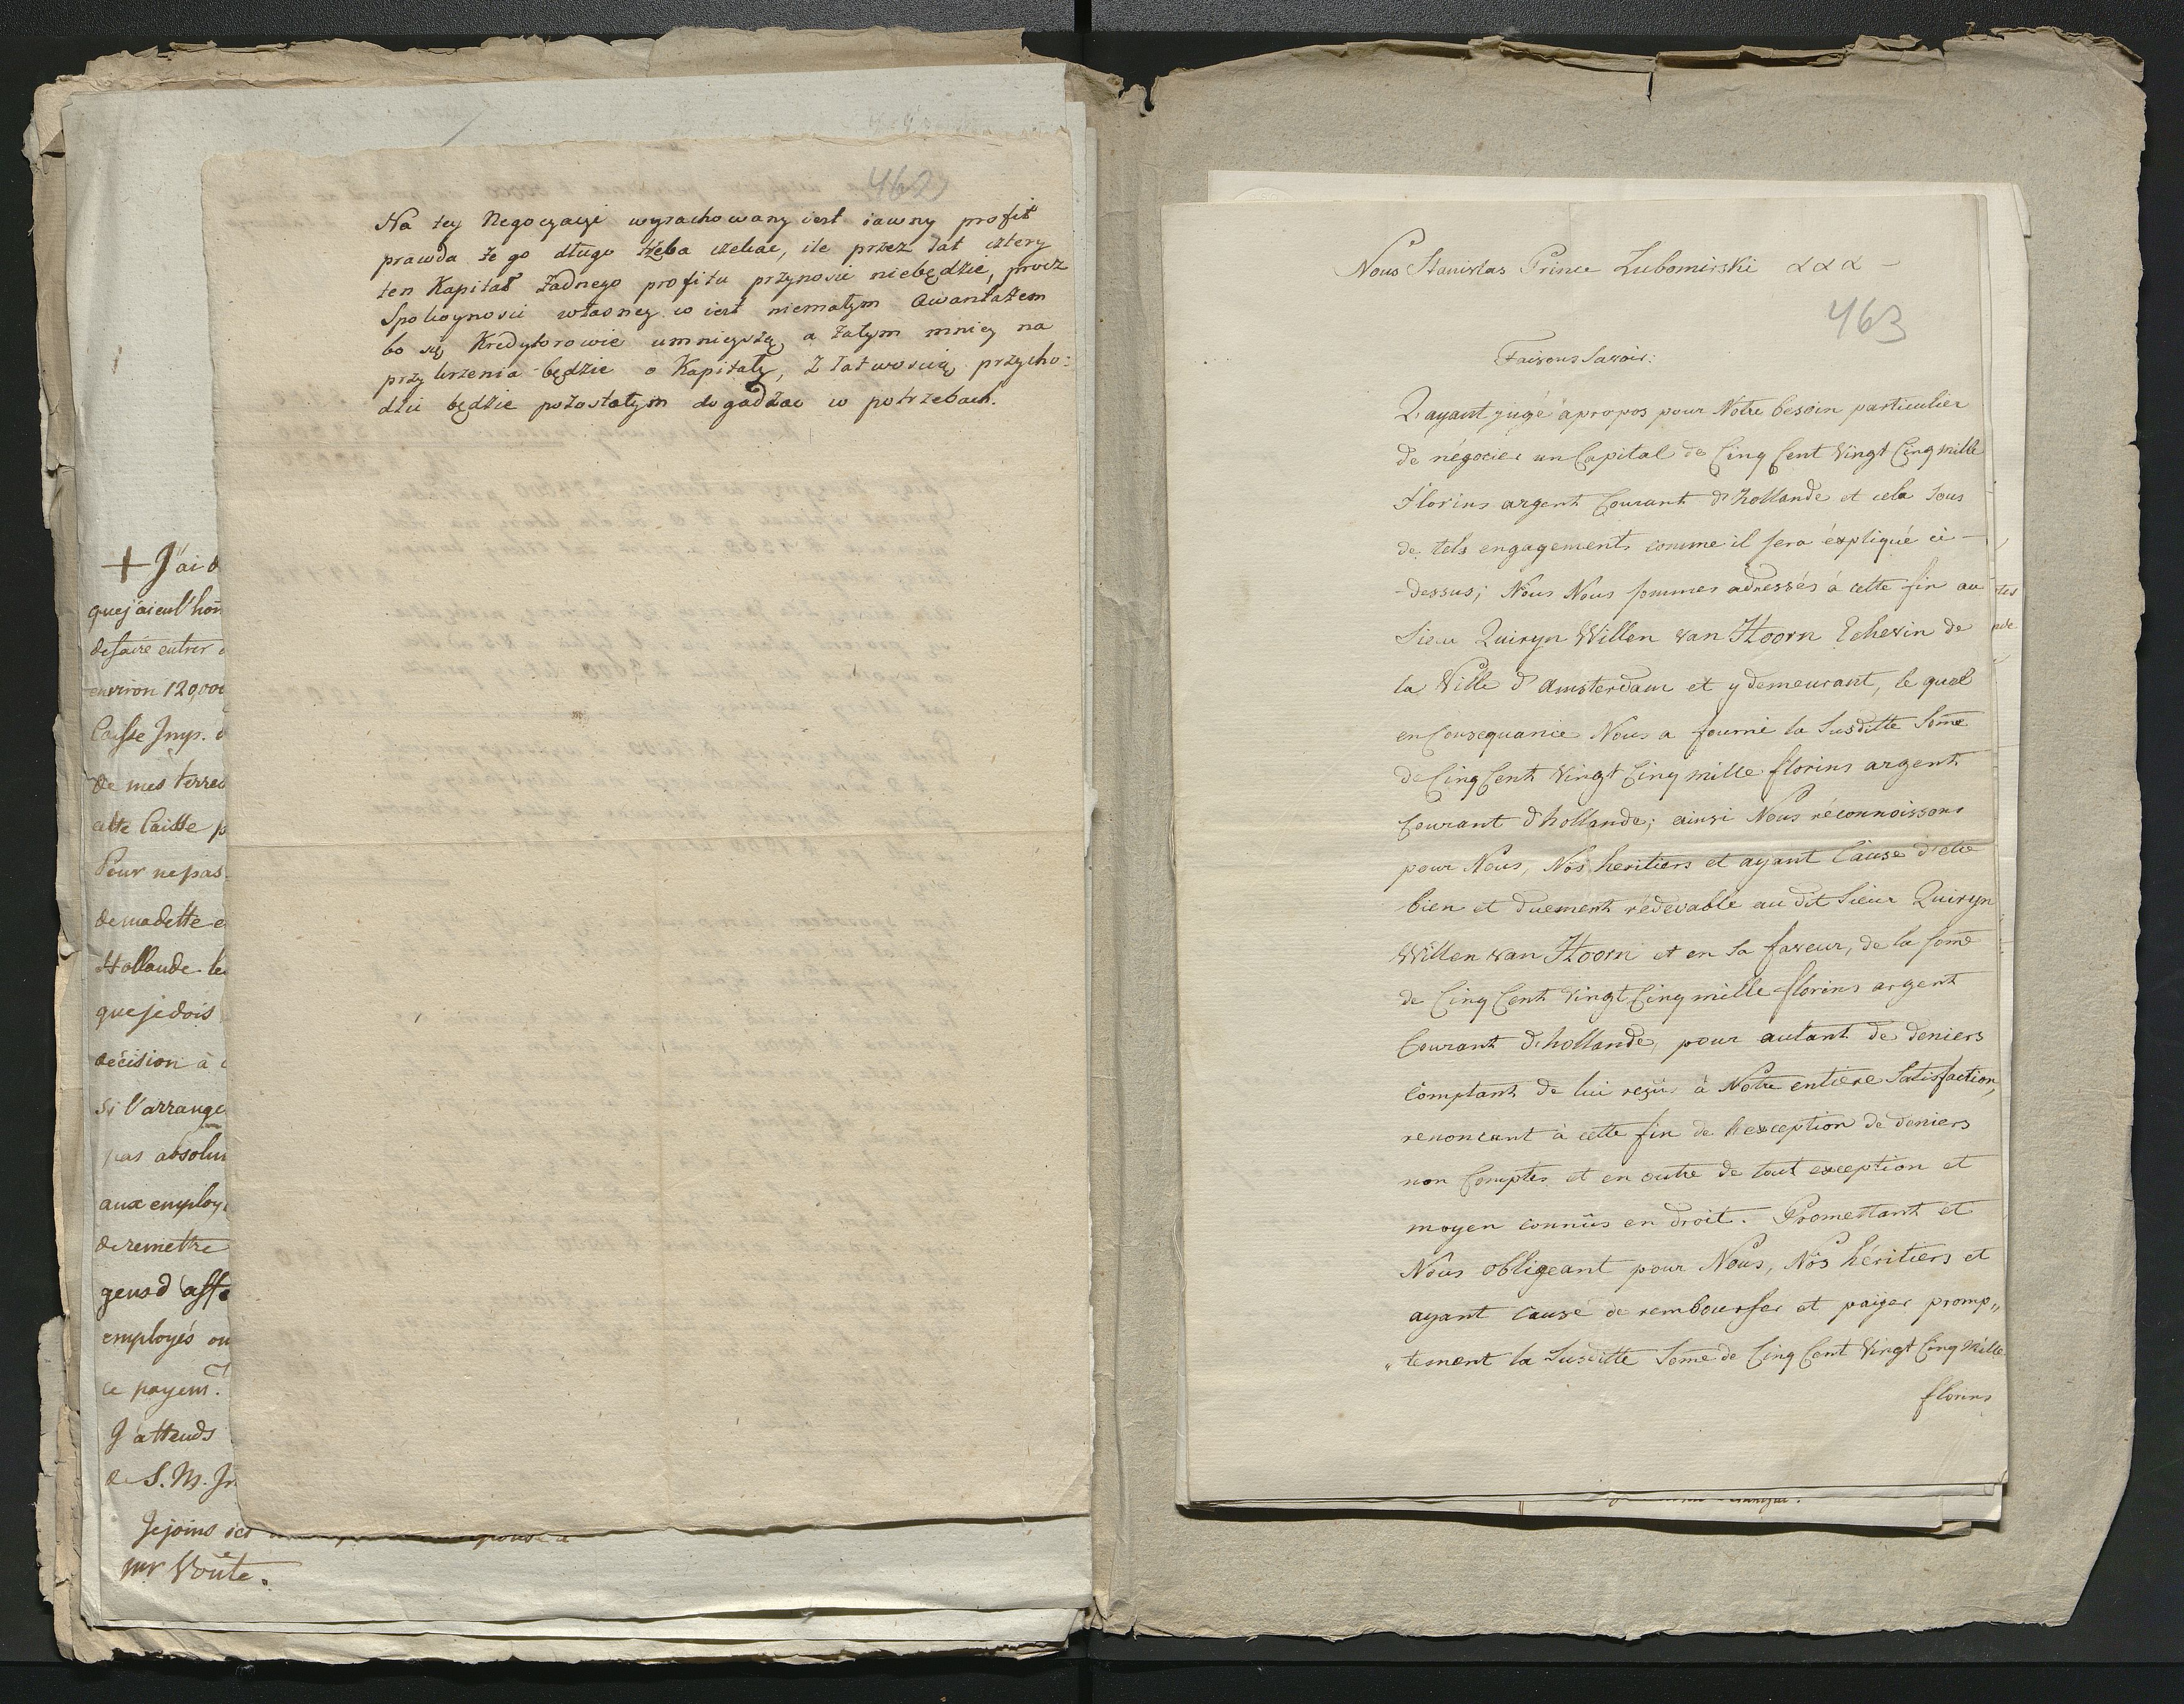 462
Na tey Negocyacyi wyrachowany iest iawny profit
prawda że go długo trzeba czekac, ile przez lat cztery
ten Kapitał żadnego profitu przynosić niebędzie, procz
Spokoynosci własney co iest niemałym Awantażem
bo się Kredytorowie umnieyszą, a zatym mniey na
przykrzenia będzie o Kapitały, z łatwoscią przycho:
dzić będzie pozostałym dogadzac w potrzebach.
+ J'ai d
que j'ai eu l'hon
de faire entrer
environ 120,000
Caisse Imp.
de mes terres
cette Caisse p
Pour ne pas
de ma dette e
Hollande le
que je dois
décision à
si l'arrange
pas absolu
aux employ
de remettre
gens d'affa
employés ou
ce payem.t
J'attends
de S. M. Im
Je joins ici
mr Voute.
Nous Stanislas Prince Lubomirski &&& -
463
Faisons Savoir:
Q'ayant jugé apropos pour Notre besoin particulier
de négocier un Capital de Cinq Cent Vingt Cinq mille
Florins argent Courant d'hollande et cela sous
de tels engagements comme il sera éxpliqué ci-
-dessus; Nous Nous sommes adressés à cette fin au
Sieu Quiryn Willen van Hoorn Echevin de
la Ville d'Amsterdam et y demeurant, le quel
en Consequanie Nous a fourni la Susditte Some
de Cinq Cent Vingt Cinq mille florins argent
Courant d'hollande; ainsi Nous réconnoissons
pour Nous, Nos heritiers et ayant Cause d'etre
bien et duement rédevable au dit Sieur Quiryn
Willen van Hoorn et en sa faveur, de la some
de Cinq Cent Vingt Cinq mille florins argent
Courant d'hollande, pour autant de deniers
Comptant de lui reçus à Notre entiere Satisfaction,
renonçant à cette fin de l'exception de deniers
non Comptés et en outre de tout exception et
moyen connûs en droit. Promettant et
Nous obligeant pour Nous, Nos héritiers et
ayant Cause de rembourser et paiger promp„
„tement la Susditte Some de Cinq Cent Vingt Cinq Mille
florins